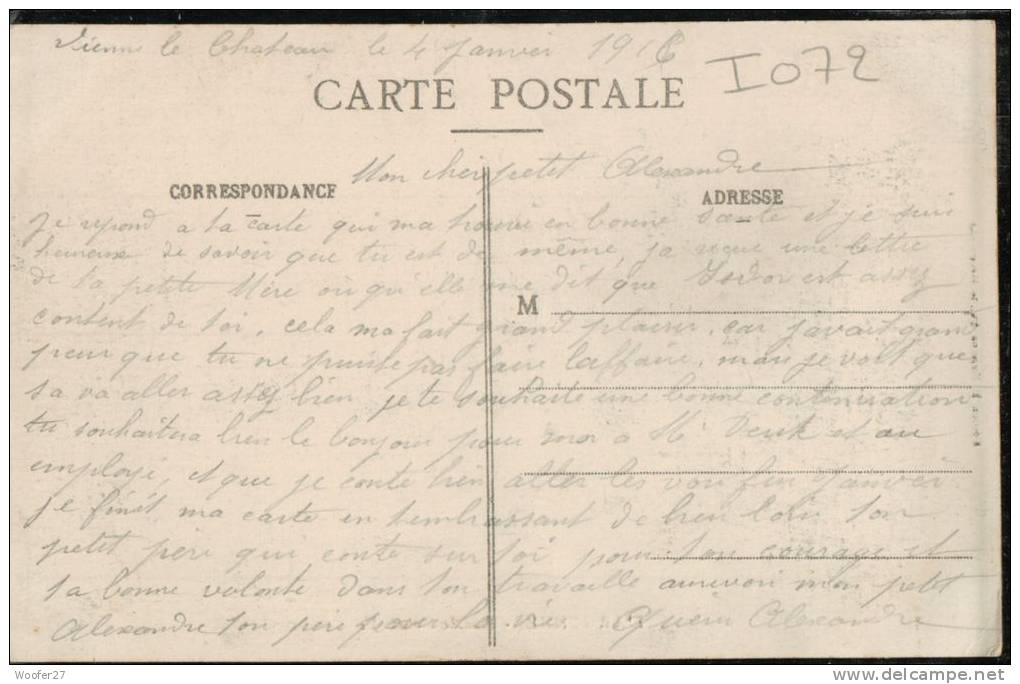 Vienne le Chateau le 4 Janvier 1916
I072
CARTE POSTALE
Mon cher petit Alexandre
CORRESPONDANCE
ADRESSE
Je repond a ta carte qui ma trouvé en bonne sante et je suis
heureux de savoir que tu est de même, ja reçue une lettre
de ta petite Mère ou qu'elle me dit que est assez
content de toi, cela ma fait grand plaisir, car j'avait grand
M
peur que tu ne puisse pas faire laffaire, mais je voit que
sa va aller assez bien je te souhaite une bonne continuation
tu souhaitera bien le bonjour pour moi a Mr et au
employé et que je conte bien aller les voir fin Janvier
je finit ma carte en tembrassant de bien loin ton
petit pere qui conte sur toi pour ton courage et
ta bonne volonte dans ton travaille aurevoir mon petit
Alexandre ton pere pour la vie Alexandre
Woofer27
delcampe.net